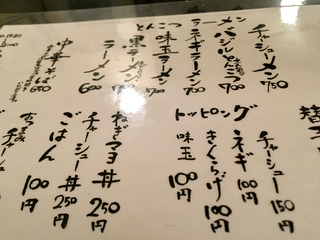 とんこつラーメン
チャーシューメン 750
バジルとんこつ 700
ネギラーメン 700
味玉ラーメン 700
黒ラーメン 700
ラーメン 600
中華そば 650
トッピング
チャーシュー 150円
ネギ 100円
きくらげ 100円
味玉 100円
ねぎマヨ丼 250円
チャーシュー丼 250円
ごはん 100円
替玉